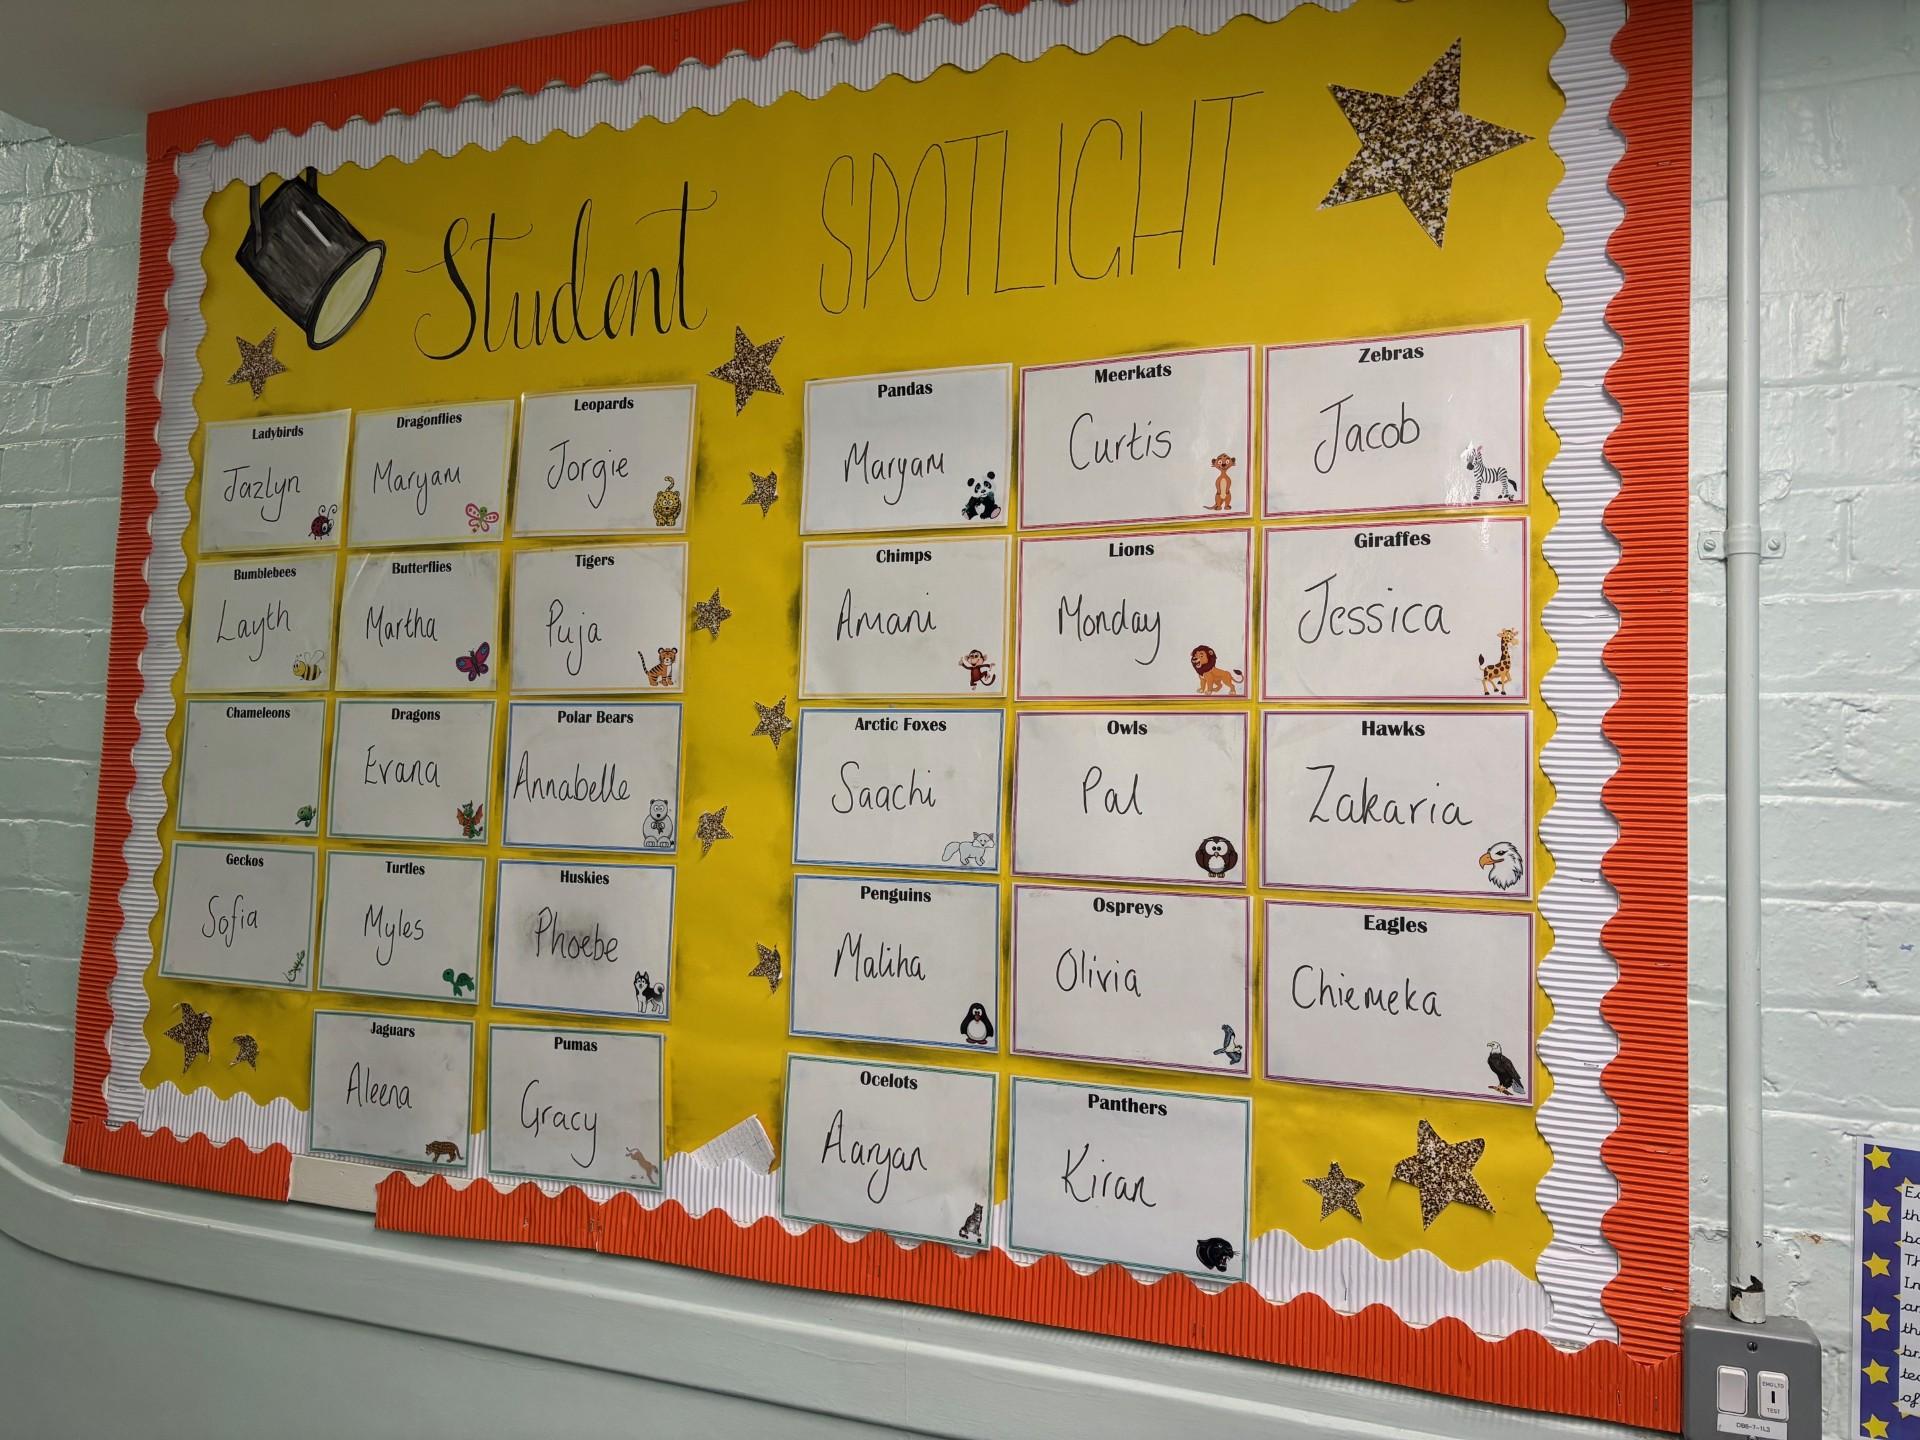 Student SPOTLIGHT
Ladybirds
Jazlyn
Dragonflies
Maryam
Leopards
Jorgie
Pandas
Maryam
Meerkats
Curtis
Zebras
Jacob
Bumblebees
Layth
Butterflies
Martha
Tigers
Puja
Chimps
Amani
Lions
Monday
Giraffes
Jessica
Chameleons
Dragons
Evana
Polar Bears
Annabelle
Arctic Foxes
Saachi
Owls
Pal
Hawks
Zakaria
Geckos
Sofia
Turtles
Myles
Huskies
Phoebe
Penguins
Maliha
Ospreys
Olivia
Eagles
Chiemeka
Jaguars
Aleena
Pumas
Gracy
Ocelots
Aaryan
Panthers
Kiran
EMG LTD
TEST